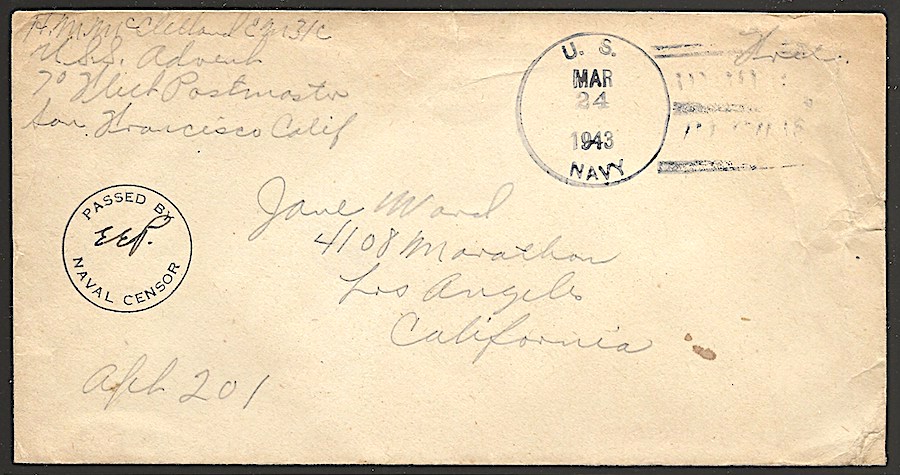 H.M. McClelland EM3/c
U.S.S. Advent
% Fleet Postmaster
San Francisco Calif
Free.
U. S.
MAR
24
1943
NAVY
PASSED BY
NAVAL CENSOR
Jane Ward
4108 Marathon
Los Angeles
California
Apt 201